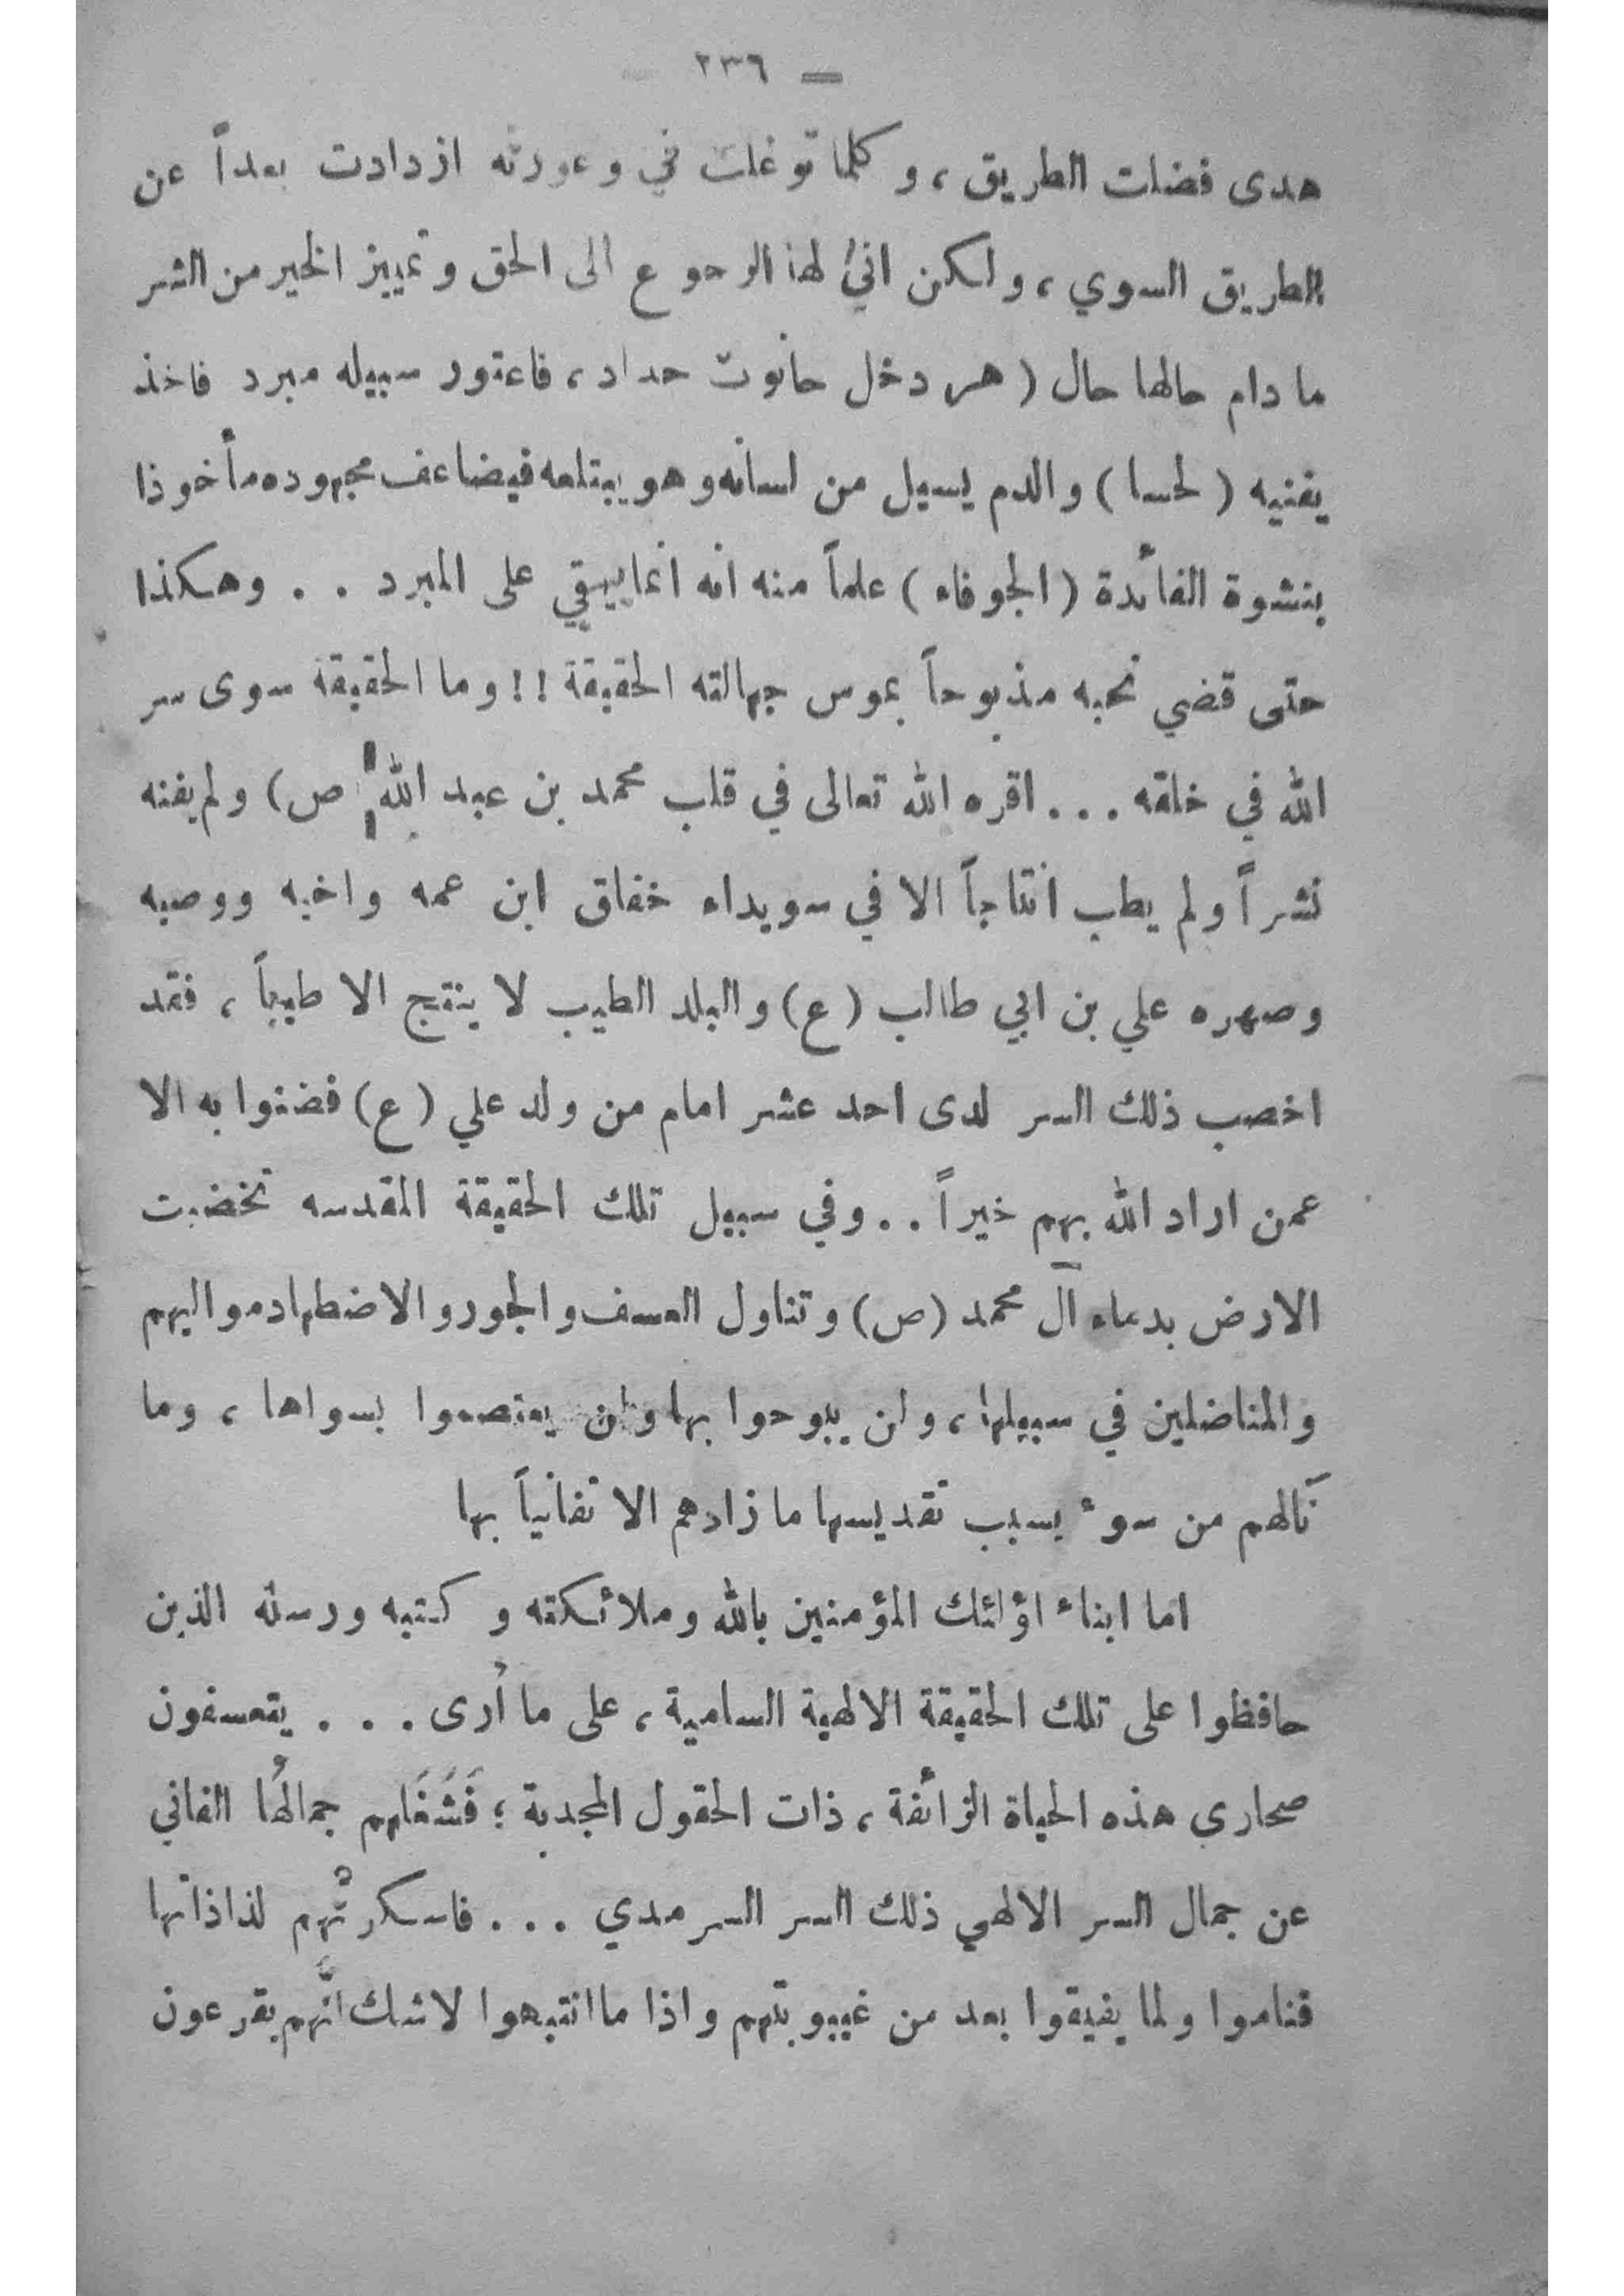 — ٢٣٦ —
هدى فضلت الطريق ، و كلما توغلت في وعورته ازدادت بعداً عن
الطريق السوي ، ولكن انىُّ لها الرجوع الى الحق وتمييز الخير من الشر
ما دام حالها حال ( هر دخل حانوت حداد ، فاعتور سبيله مبرد فاخذ
يفنيه ( لحسا ) والدم يسيل من لسانه وهو يبتلعه فيضاعف مجهوده مأخوذا
بنشوة الفائدة ( الجوفاء ) علماً منه انه انما يبقي على المبرد . . وهكذا
حتى قضي نحبه مذبوحاً بموس جهالته الحقيقة !! وما الحقيقة سوى سر
الله في خلقه . . . اقره الله تعالى في قلب محمد بن عبد الله ( ص ) ولم يفنه
نشراً ولم يطب انتاجاً الا في سويداء خفاق ابن عمه واخيه ووصيه
وصهره علي بن ابي طالب ( ع ) والبلد الطيب لا ينتج الا طيباً ، فقد
اخصب ذلك السر لدى احد عشر امام من ولد علي ( ع ) فضنوا به الا
عمن اراد الله بهم خيراً . . وفي سبيل تلك الحقيقة المقدسه تخضبت
الارض بدماء آل محمد ( ص ) وتناول العسف والجور والاضطهاد مواليهم
والمناضلين في سبيلها ، ولن يبوحوا بها ولن يعتصموا بسواها ، وما
نَالهم من سوء بسبب تقديسها ما زادهم الا تفانياً بها
اما ابناء اؤلئك المؤمنين بالله وملائكته و كتبه ورسله الذين
حافظوا على تلك الحقيقة الالهية السامية ، على ما أرى . . . يتعسفون
صحاري هذه الحياة الزائفة ، ذات الحقول المجدبة ؛ فَشَغَلهم جمالهُا الفاني
عن جمال السر الالهي ذلك السر السرمدي . . . فاسكرتُهم لذاذاتها
فناموا ولما يفيقوا بعد من غيبوبتهم واذا ما انتبهوا لاشك انَّهم يقرعون